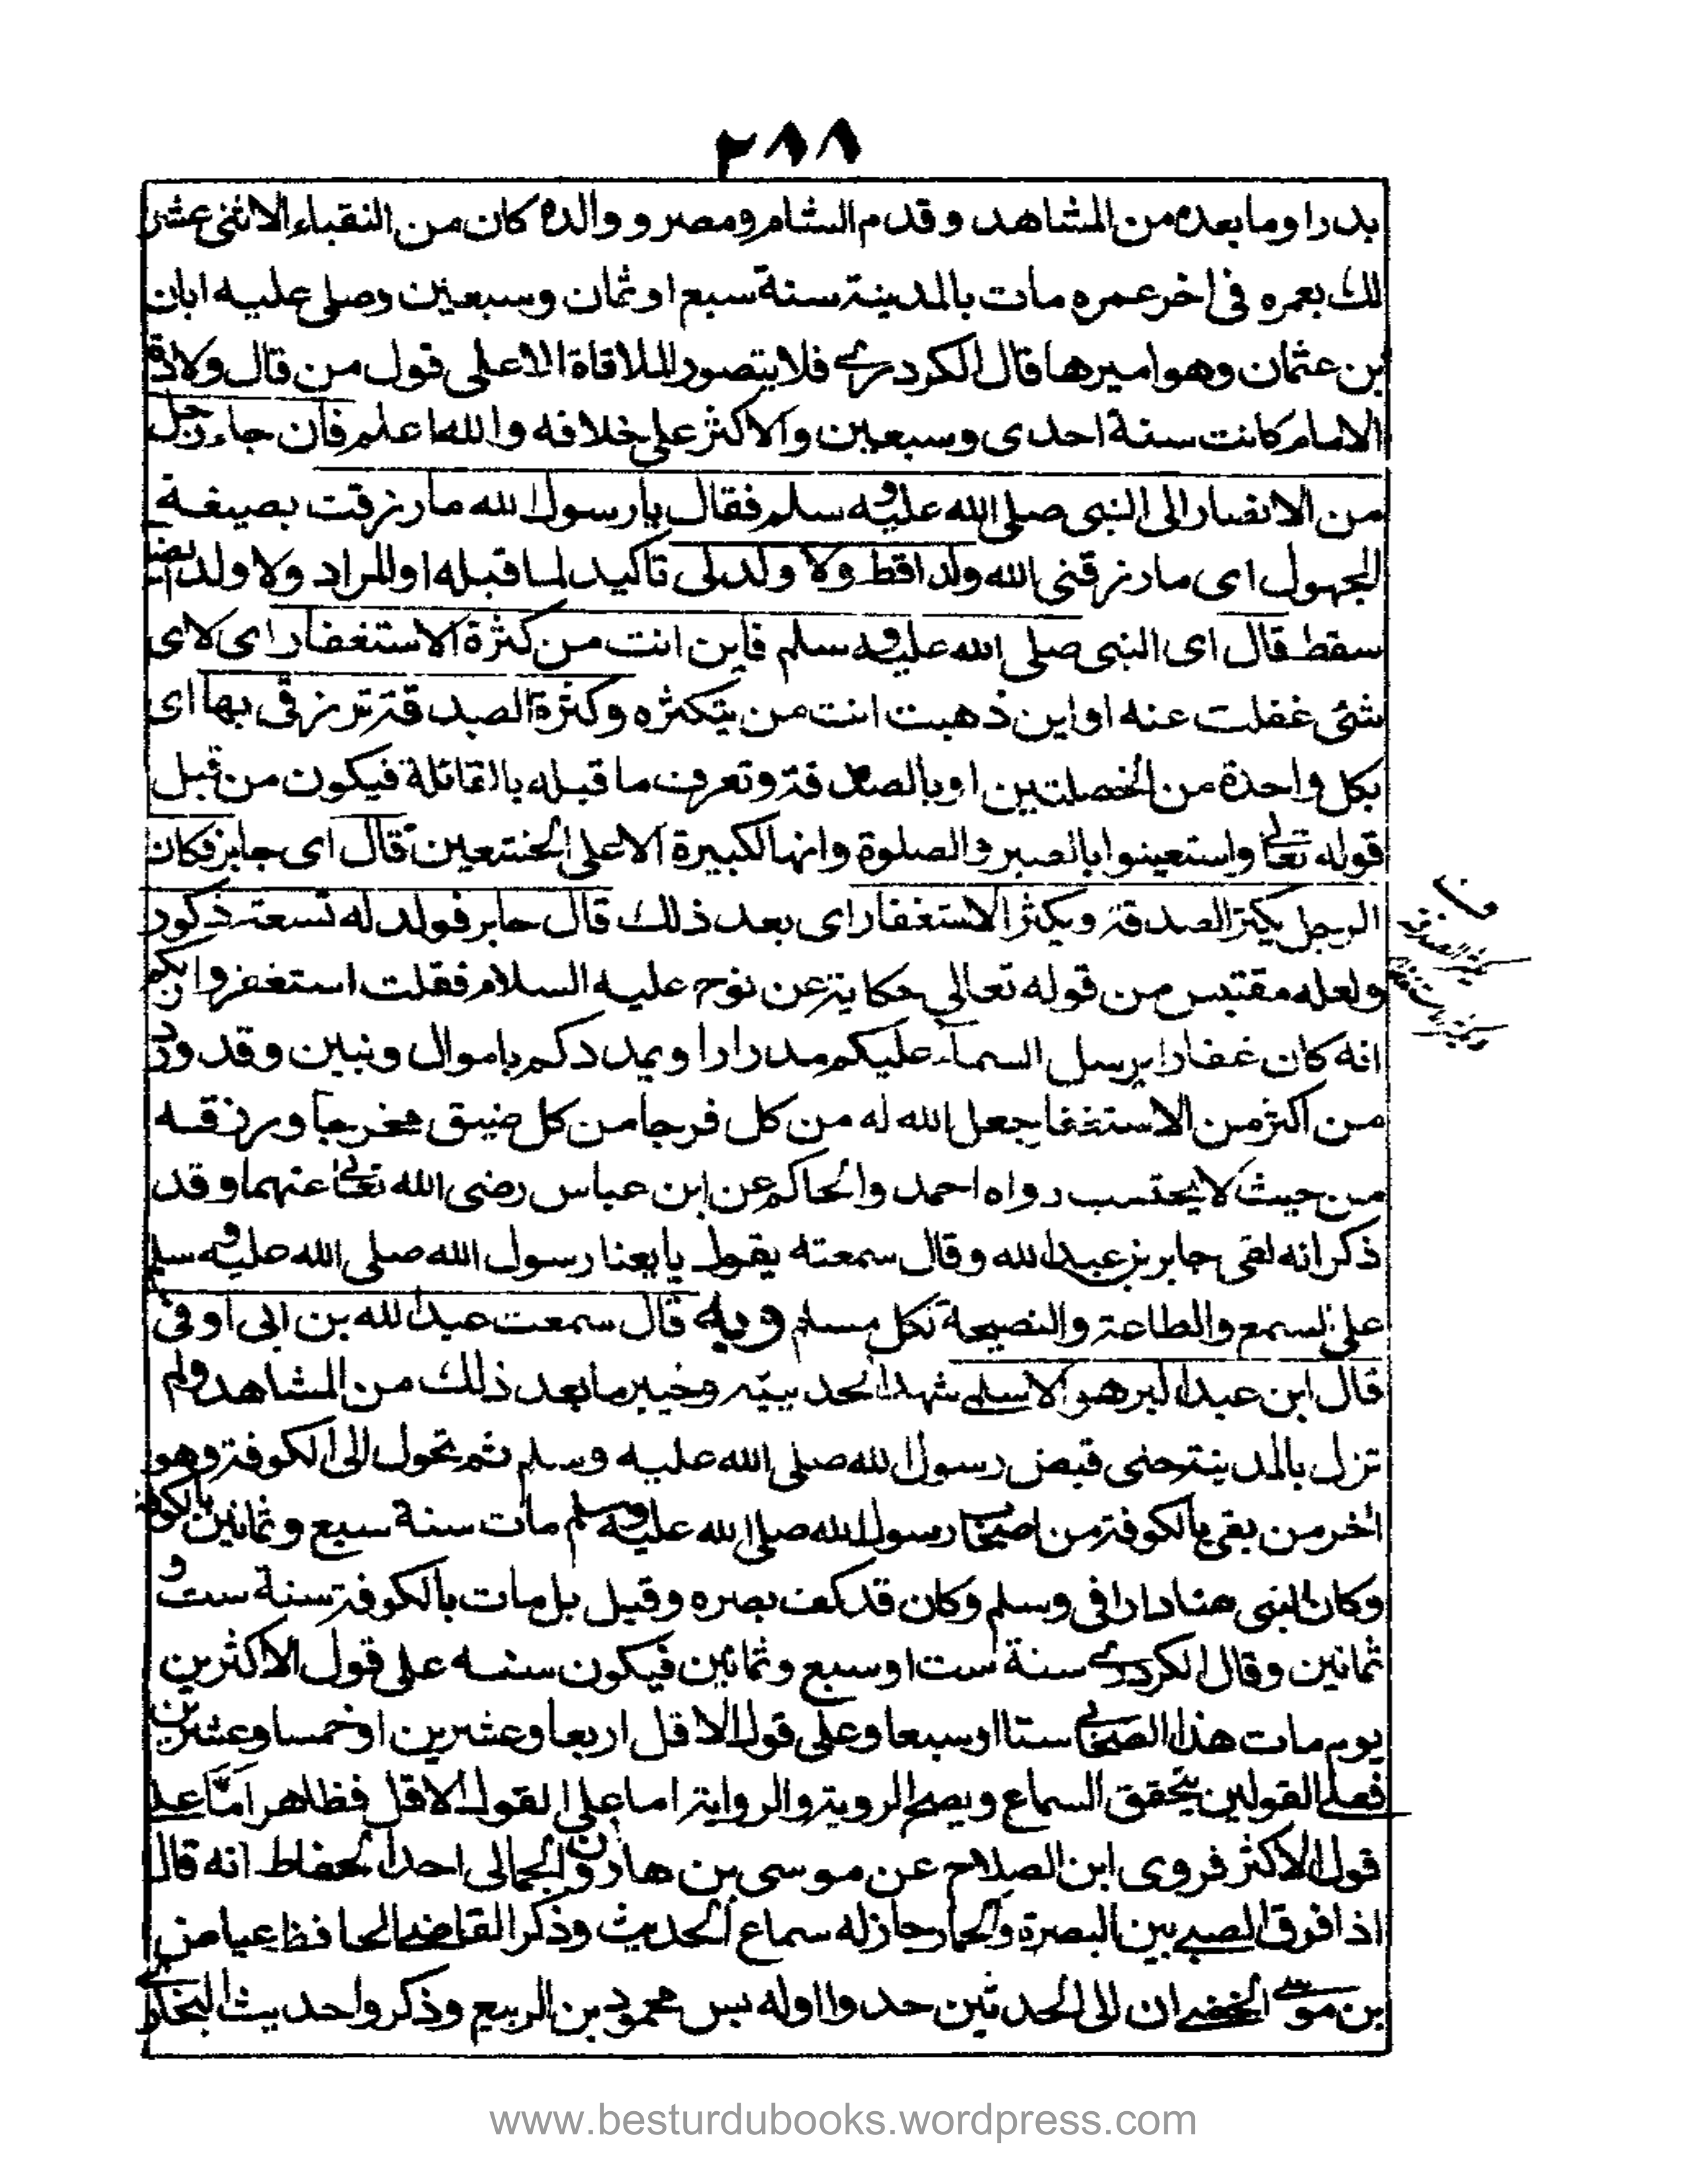 ٢٨٨
بدرا وما بعده من المشاهد وقدم الشام ومصر و والده كان من النقباء الاثنى عشر
بعمره فى اخر عمره مات بالمدينة سنة سبع او ثمان وسبعين وصلى عليه ابان
بن عثمان وهو اميرها قال الكردرى فلا يتصور الملاقاة الا على قول من قال ولادة
الامام كانت سنة احدى وسبعين والاكثر على خلافه والله اعلم فان جاء رجل
من الانصار الى النبى صلى الله عليه وسلم فقال يا رسول الله ما رزقت بصيغة
المجهول اى ما رزقنى الله ولدا قط ولا ولد لى تاكيد لما قبله او المراد ولا ولد
سقط قال اى النبى صلى الله عليه وسلم فاين انت من كثرة الاستغفار اى لاى
شئ غفلت عنه او اين ذهبت انت من يتكثره وكثرة الصدقة ترزق بها اى
بكل واحدة من الخصلتين او بالصدقة وتعرف ما قبله بالقائلة فيكون من قبيل
قوله تعالى واستعينوا بالصبر والصلوة وانها لكبيرة الا على الخشعين قال اى جابر فكان
الرجل يكثر الصدقة ويكثر الاستغفار اى بعد ذلك قال جابر فولد له تسعة ذكور
ولعله مقتبس من قوله تعالى حكاية عن نوح عليه السلام فقلت استغفروا ربكم
انه كان غفارا يرسل السماء عليكم مدرارا ويمددكم باموال وبنين وقد ورد
من اكثر من الاستغفا جعل الله له من كل فرجا من كل ضيق مخرجا ورزقه
من حيث لا يحتسب رواه احمد والحاكم عن ابن عباس رضى الله تعالى عنهما وقد
ذكر انه لقى جابر بن عبد الله وقال سمعته يقول بايعنا رسول الله صلى الله عليه وسلم
على السمع والطاعة والنصيحة لكل مسلم وبه قال سمعت عبد الله بن ابى اوفى
قال ابن عبد البر هو الاسلمى شهد الحديبيه وخيبر ما بعد ذلك من المشاهد ولم
تزل بالمدينة حتى قبض رسول الله صلى الله عليه وسلم ثم تحول الى الكوفة وهو
اخر من بقى بالكوفة من اصحاب رسول الله صلى الله عليه وسلم مات سنة سبع وثمانين بالكوفة
وكان ابنى هنا دارا فى وسلم وكان قد كف بصره وقيل بل مات بالكوفة سنة ست و
ثمانين وقال الكردرى سنة ست او سبع وثمانين فيكون سنه على قول الاكثرين
يوم مات هذا الصحابى ستا او سبعا وعلى قول الاقل اربعا وعشرين او خمسا وعشرين
فعلى القولين يتحقق السماع ويصح الروية والرواية اما على القول الاقل فظاهر اما على
قول الاكثر فروى ابن الصلاح عن موسى بن هارون الجمالى احد الحفاظ انه قال
اذا فرق الصبى بين البصرة والحمار جاز له سماع الحديث وذكر القاضى الحافظ عياض
بن موسى ان الى المحدثين حدوا اوله بسن محمود بن الربيع وذكروا حديث البخارى
www.besturdubooks.wordpress.com